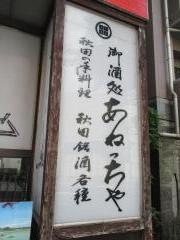 御酒処
あねっこや
秋田の味料理
秋田銘酒各種